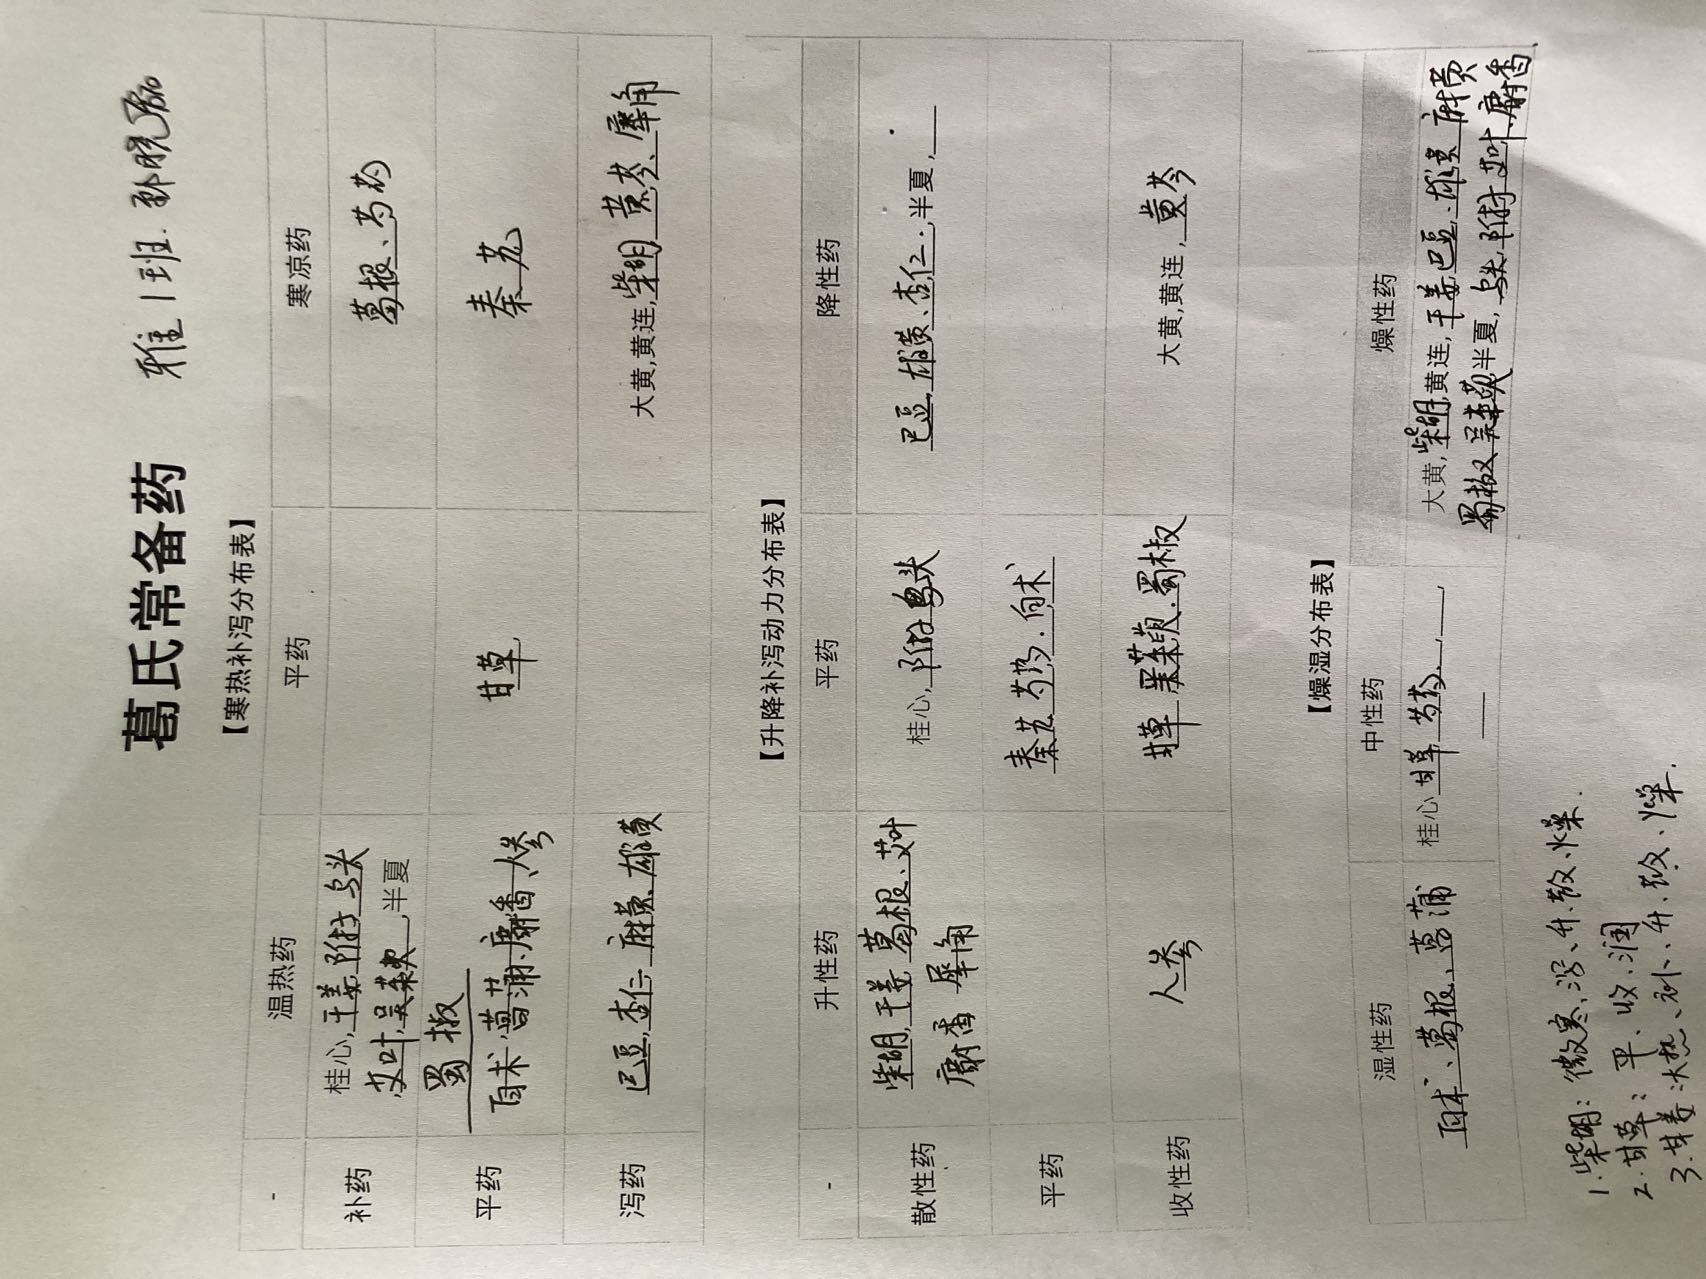 葛氏常备药 雅1班.孙晓磊
【寒热补泻分布表】
- 温热药 平药 寒凉药
补药 桂心,干姜,附子,乌头 葛根、芍药
艾叶,吴茱萸,半夏
蜀椒
平药 白术,菖蒲、麝香、人参 甘草, 秦艽
泻药 巴豆,杏仁,麻黄、雄黄 大黄,黄连,柴胡,黄芩、犀角
【升降补泻动力分布表】
- 升性药 平药 降性药
散性药 柴胡,干姜,葛根、艾叶 桂心,附子,乌头 巴豆,雄黄、杏仁.,半夏,
麝香 犀角
平药 秦艽,芍药.白术
收性药 人参 甘草 吴茱萸.蜀椒 大黄,黄连,黄芩
【燥湿分布表】
湿性药 中性药 燥性药
白术、葛根、菖蒲 桂心,甘草,芍药, 大黄,柴胡,黄连,干姜,巴豆,雄黄,麻黄
蜀椒 吴茱萸,半夏,乌头,附子,艾叶,麝香
1.柴胡:微寒、泻、升、散、燥.
2.甘草:平、收、润
3.干姜:大热、补、升、散、燥.